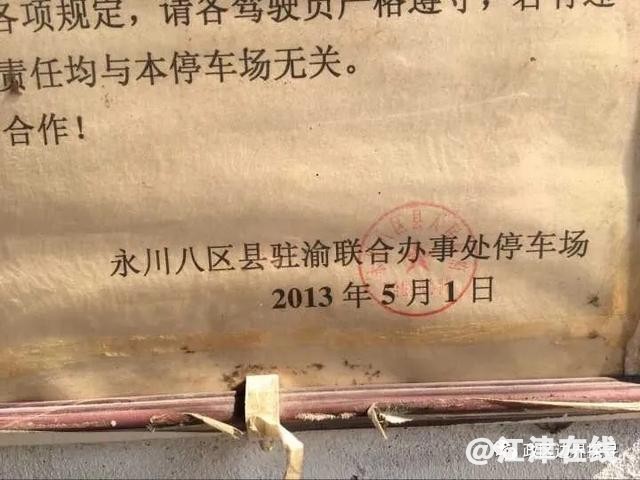 各项规定，请各驾驶员严格遵守，若有违
责任均与本停车场无关。
合作！
永川八区县驻渝联合办事处停车场
2013年5月1日
@江津在线